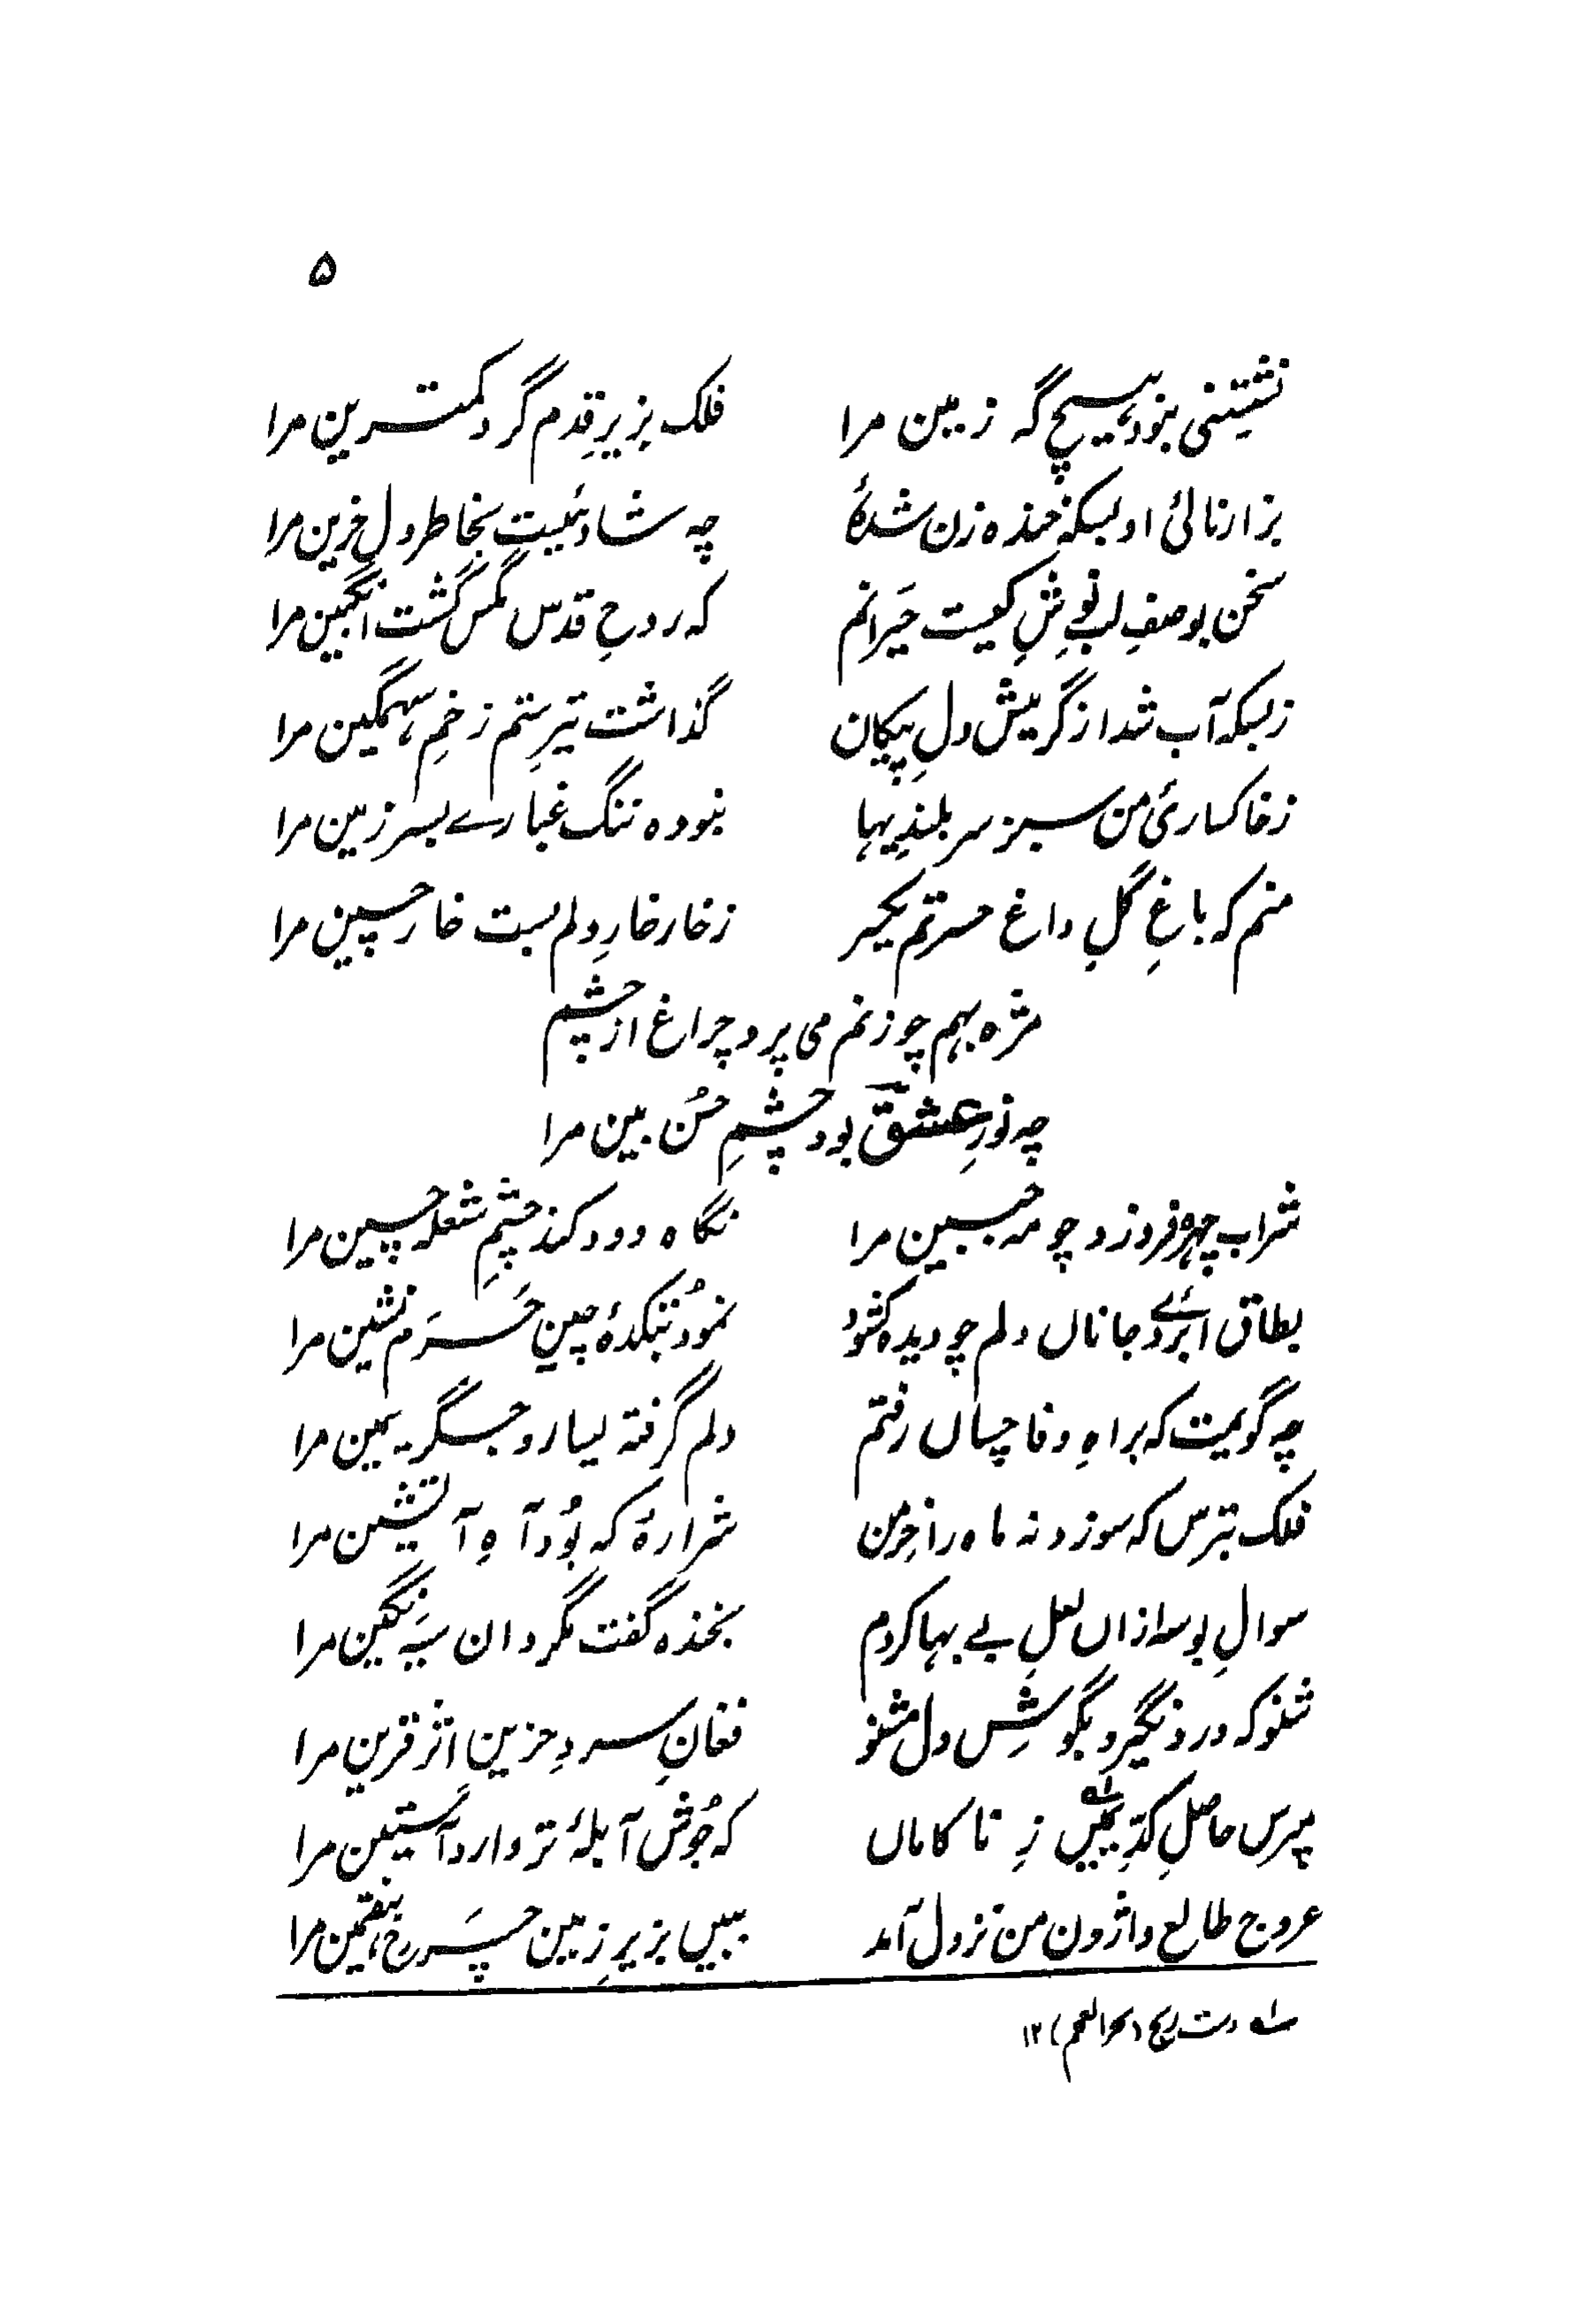 ۵
نشستنی نبود ہیچ گہ ز مین مرا فلک بزیرِ قدم گرد کمترین مرا
بزار نالئ او بسکہ خندہ زن شدۂ چہ شادئیست بخاطر دلِ حزین مرا
سخن بوصفِ لبِ نوشِ کیست حیَرانم کہ روحِ قدس مگس گشت انگبین مرا
زبسکہ آب شد از گرمیش دلِ پیکان گذاشت تیرِ ستم زخمِ سہمگین مرا
زخاکساریٔ من سبز سر بلندیہا نبودہ ننگ غبارے بسر زمین مرا
منم کہ باغِ گلِ داغ حسرتم یکسر زخار خارِ دلم بست خار چین مرا
مژہ بہم چو زنم می پرد چراغ از چشم
چہ نورِ عشق بود چشمِ حسُن بین مرا
شراب چہرہ فروزد چو مہ جبین مرا نگاہ دود کند چشمِ شعلہ چین مرا
بطاق ابروئے جاناں دلم چو دیدہ کشود نمودُ بتکدۂ چینِ حَرَم نشین مرا
چہ گویمیت کہ براہِ وفا چساں رفتم دلم گرفتہ یسار و جگر یمین مرا
فلک بترس کہ سوزد نہ ماہ را خرمن شرارۂ کہ بوُد آہِ آتشین مرا
سوالِ بوسہ ازاں لعلِ بے بہا کردم بخندہ گفت مگردان سیَہ نگین مرا
شنو کہ درد نگیرد بگوشِ دل مشنو فغانِ سردِ حزینِ اثر قرین مرا
مپرس حاصلِ کدِّ یمیں ؎۱ زِ ناکاماں کہ جُوش آبلۂ تر دارد آستین مرا
عروج طالع واژون من نزول آمد ببیں بزیرِ زمین چَرخ ہفتمین مرا
؎۱ دست رنج (بحرالعجم) ۱۲